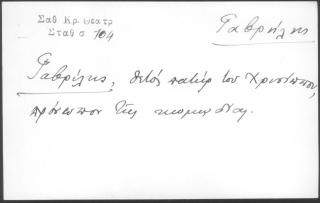 Σαθ Κρ. Θεατρ
Σταθ σ 104
Γαβρίλης
Γαβρίλης, θετός πατήρ του Χρυσίππου,
πρόσωπον της κωμωδίας.